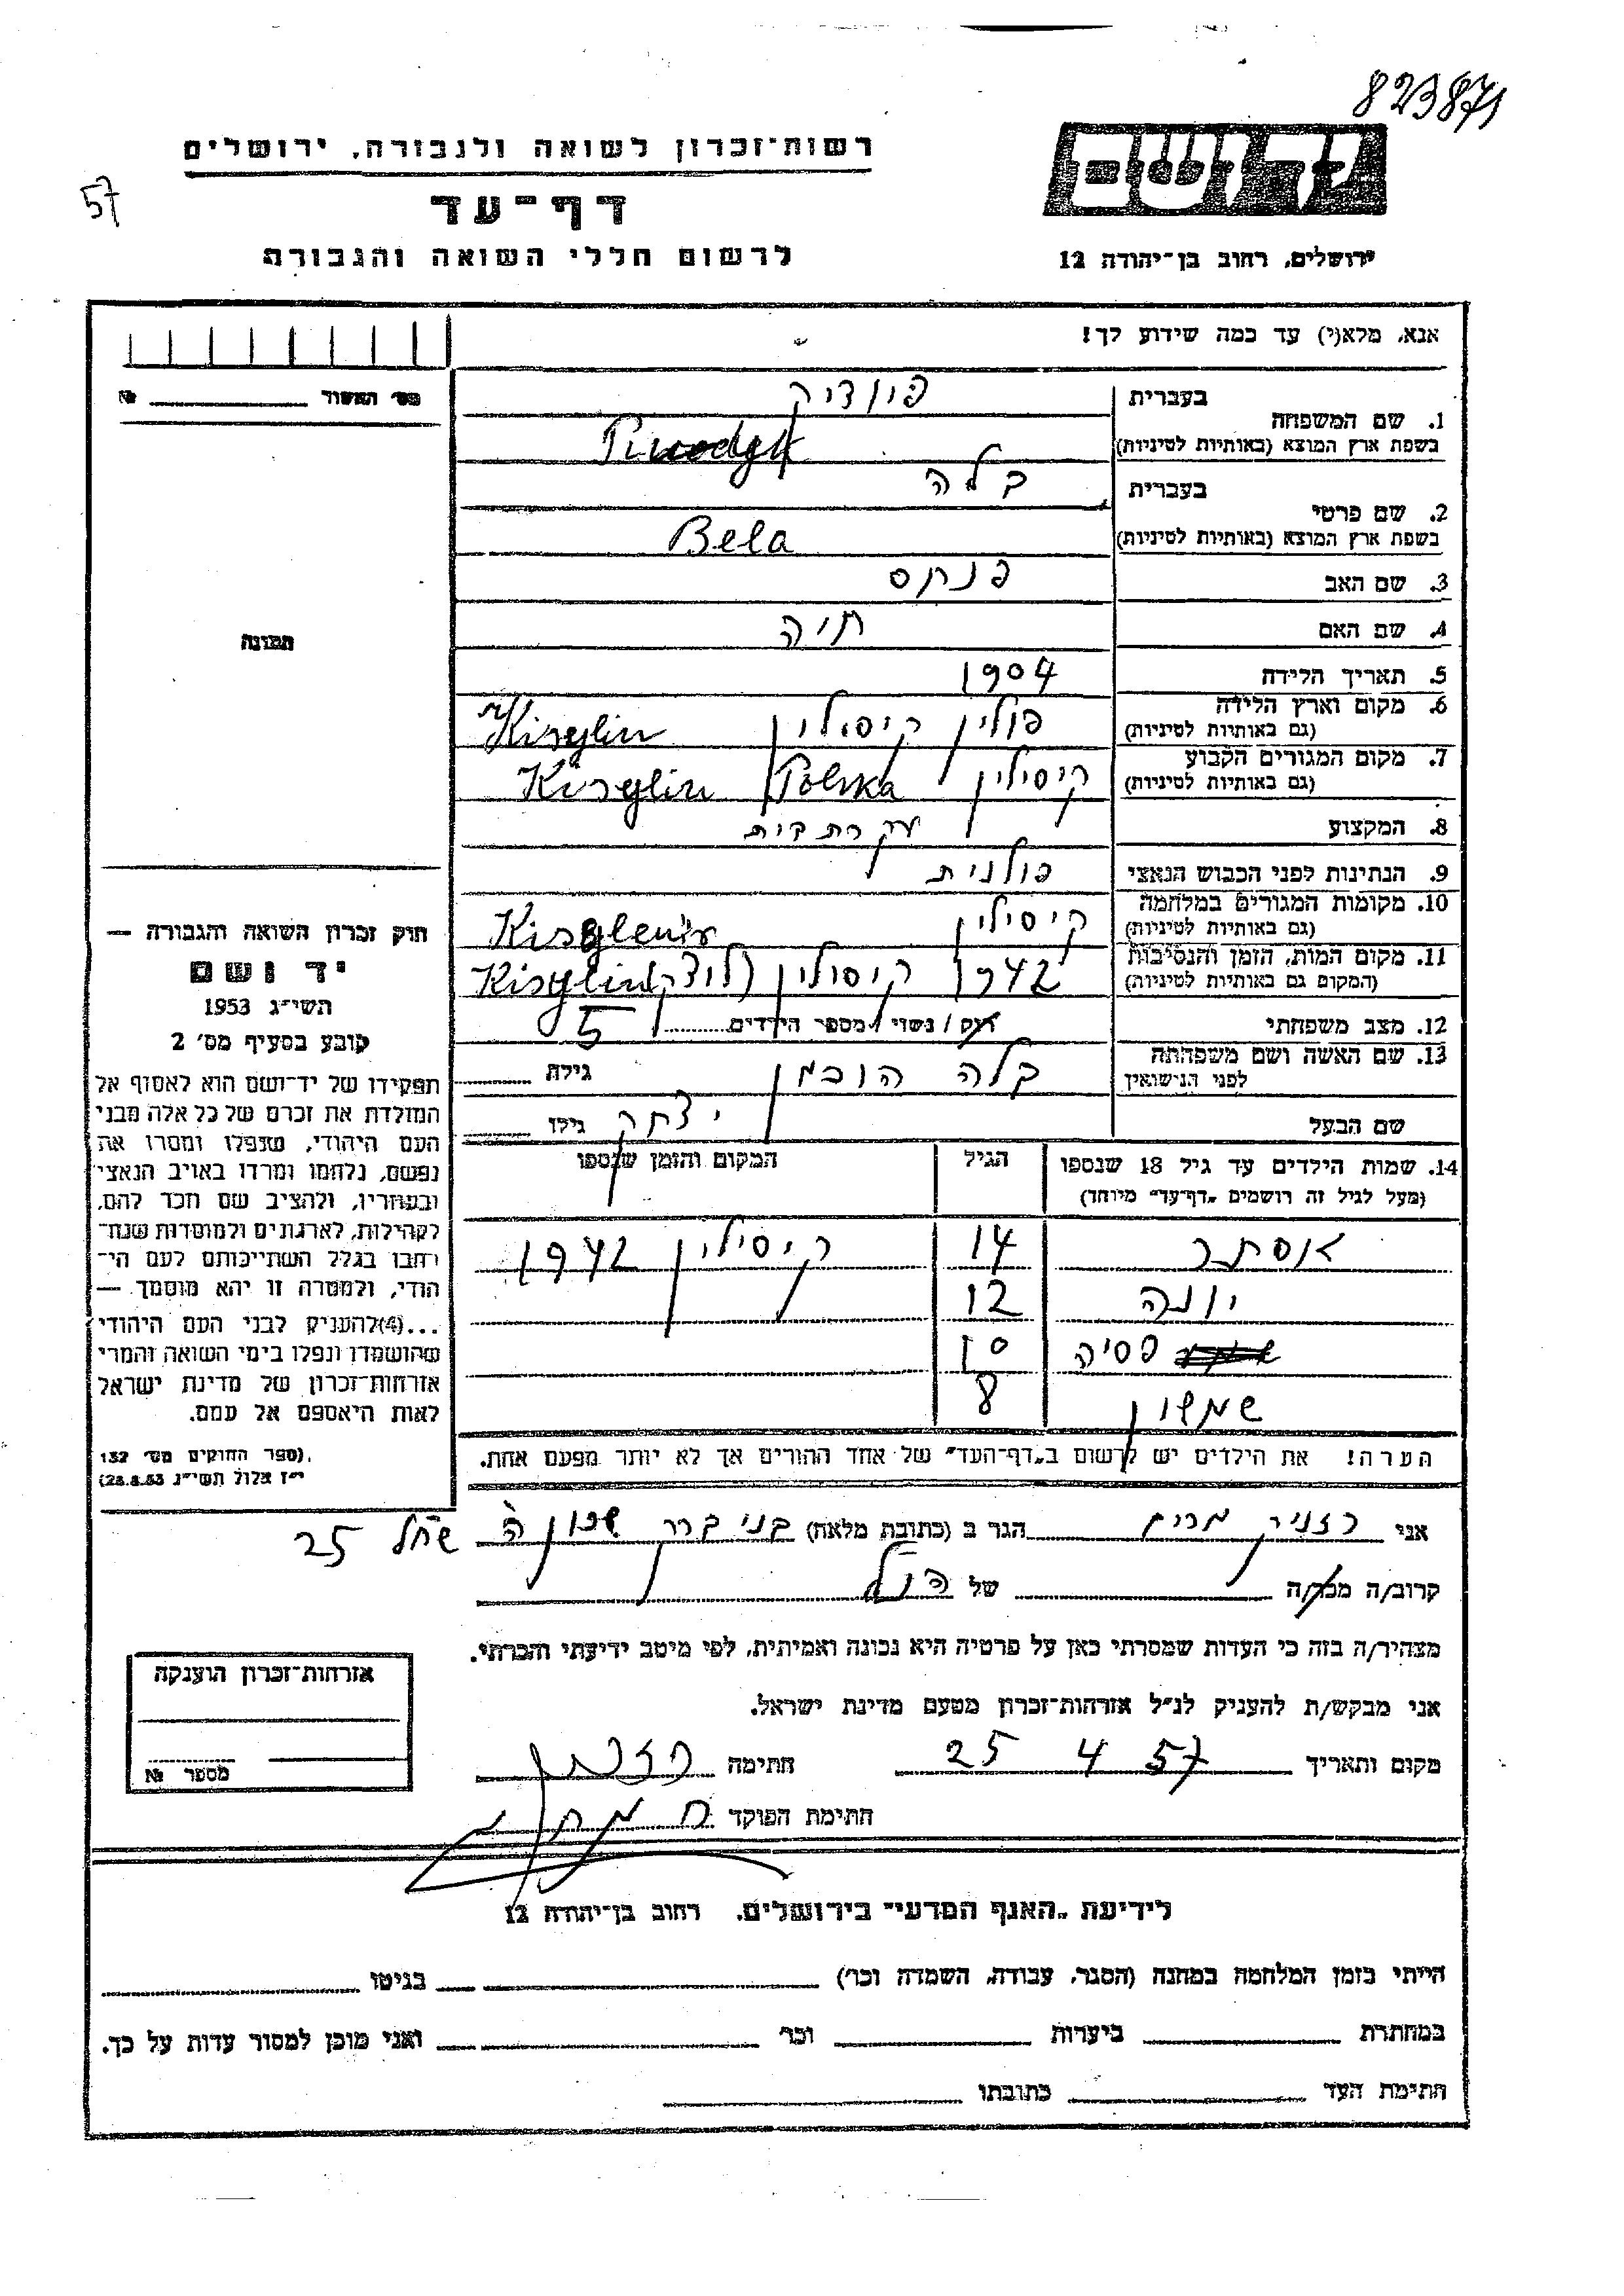 823871
רשות־זכרון לשואה ולגבורה, ירושלים
57
דף־עד
לרשום חללי השואה והגבורה
ידושם
ירושלים, רחוב בן־יהודה 12
אנא, מלא(י) עד כמה שידוע לך!
מס׳ האשור №
1. שם המשפחה בעברית פונדיק
בשפת ארץ המוצא (באותיות לטיניות)
2. שם פרטי בעברית בלה
בשפת ארץ המוצא (באותיות לטיניות) Bela
3. שם האב פנחס
4. שם האם חיה
5. תאריך הלידה 1904
6. מקום וארץ הלידה (גם באותיות לטיניות) פולין קיסילין Kisylin
7. מקום המגורים הקבוע (גם באותיות לטיניות) קיסילין Polska Kisylin
8. המקצוע עקרת בית
9. הנתינות לפני הכבוש הנאצי פולנית
10. מקומות המגורים במלחמה (גם באותיות לטיניות) קיסילין
11. מקום המות, הזמן והנסיבות (המקום גם באותיות לטיניות) 1942 קיסילין Kisylin
12. מצב משפחתי רווק / נשוי / מספר הילדים 5
13. שם האשה ושם משפחתה לפני הנישואין בלה הוכמן גילה
שם הבעל יצחק גילו
14. שמות הילדים עד גיל 18 שנספו הגיל המקום והזמן שנספו
(מעל לגיל זה רושמים „דף־עד״ מיוחד)
אסתר 14 קיסילין 1942
יונה 12
פסיה 10
שמשון 8
הערה! את הילדים יש לרשום ב„דף־העד״ של אחד ההורים אך לא יותר מפעם אחת.
תמונה
חוק זכרון השואה והגבורה —
יד ושם
תשי״ג 1953
קובע בסעיף מס׳ 2
תפקידו של יד־ושם הוא לאסוף אל
המולדת את זכרם של כל אלה מבני
העם היהודי, שנפלו ומסרו את
נפשם, נלחמו ומרדו באויב הנאצי
ובעוזריו, ולהציב שם וזכר להם,
לקהילות, לארגונים ולמוסדות שנח־
רבו בגלל השתייכותם לעם הי־
הודי, ולמטרה זו יהא מוסמך —
...(4) להעניק לבני העם היהודי
שהושמדו ונפלו בימי השואה והמרי
אזרחות־זכרון של מדינת ישראל
לאות היאספם אל עמם.
(ספר החוקים מס׳ 132,
י״ז אלול תשי״ג 28.8.53)
אני רזניק מרים הגר ב (כתובת מלאה) בני ברק שכון ה׳ 25
קרוב/ה מכר/ה של הנ״ל
מצהיר/ה בזה כי העדות שמסרתי כאן על פרטיה היא נכונה ואמיתית, לפי מיטב ידיעתי והכרתי.
אני מבקש/ת להעניק לנ״ל אזרחות־זכרון מטעם מדינת ישראל.
מקום ותאריך 25 4 57 חתימה
חתימת הפוקד
אזרחות־זכרון הוענקה
מספר №
לידיעת „האגף המדעי״ בירושלים. רחוב בן־יהודה 12
הייתי בזמן המלחמה במחנה (הסגר, עבודה, השמדה וכו׳) בגיטו
במחתרת ביערות וכו׳ ואני מוכן למסור עדות על כך.
חתימת העד כתובתו